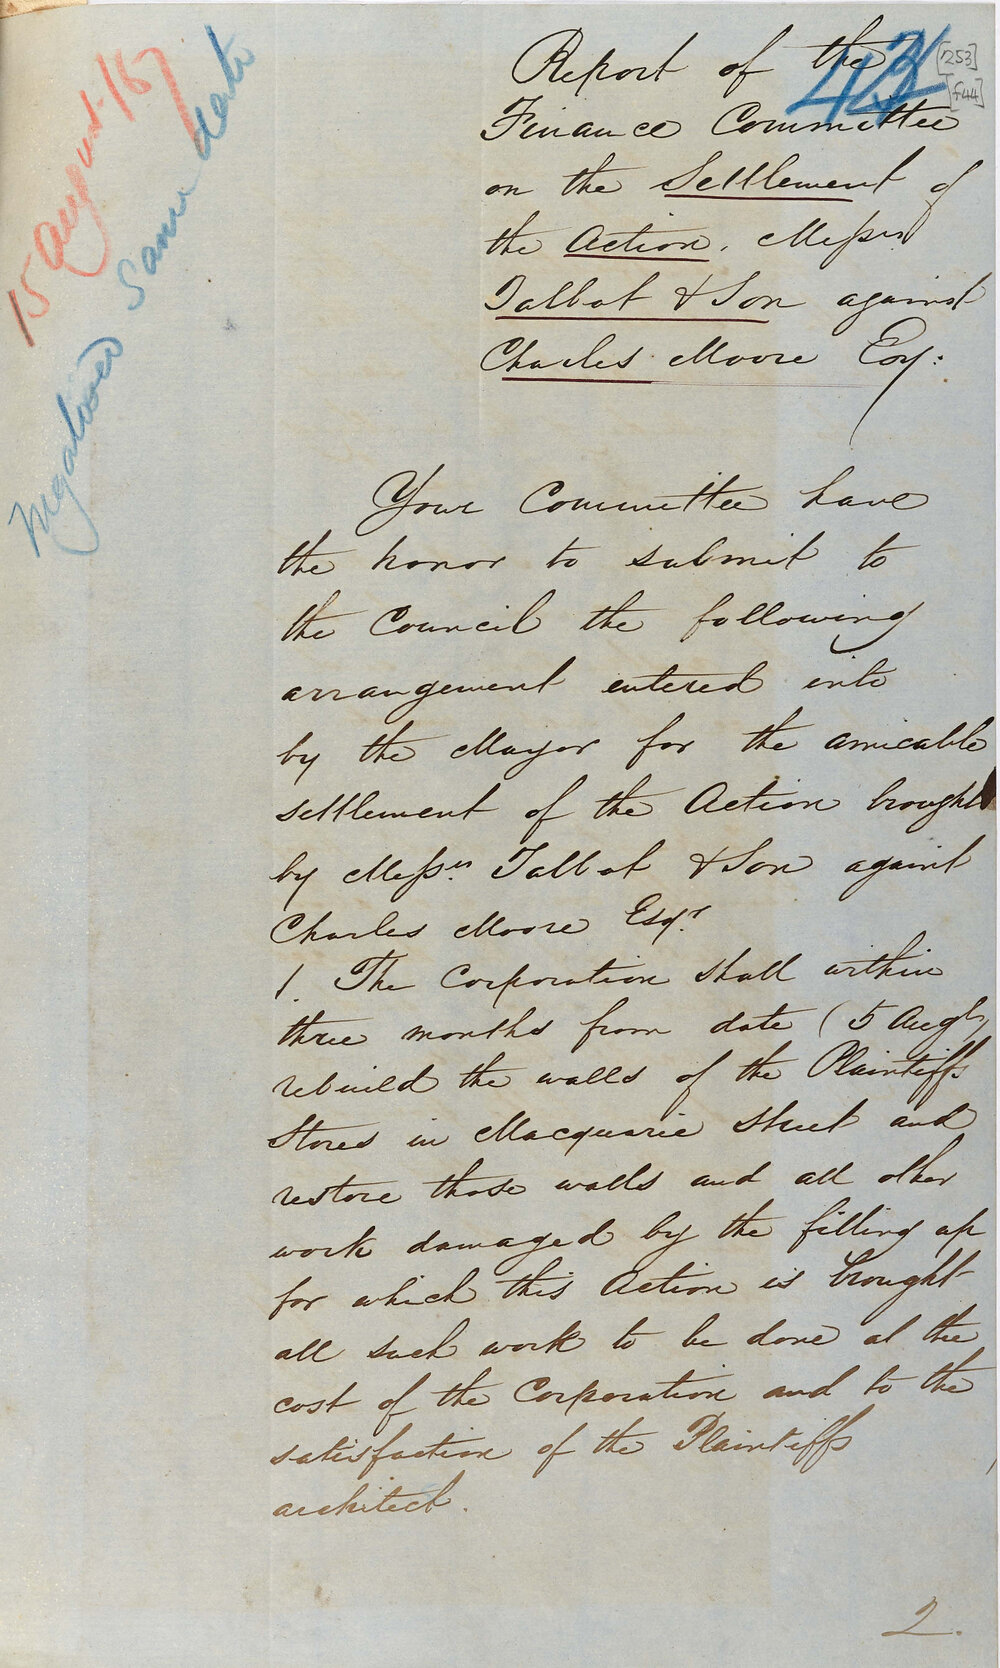 15 August /67
Negatived Same date
43
[253]
[f44]
Report of the
Finance Committee
on the Settlement of
the Action. Messrs
Talbot & Son against
Charles Moore Esq:
Your Committee have
the honor to submit to
the Council the following
arrangement entered into
by the Mayor for the amicable
settlement of the Action brought
by Messrs. Talbot & Son against
Charles Moore Esqr.
1. The Corporation shall within
three months from date (5 Augt)
rebuild the walls of the Plaintiffs
Stores in Macquarie Street and
restore those walls and all other
work damaged by the filling up
for which this Action is brought
all such work to be done at the
cost of the Corporation and to the
satisfaction of the Plaintiffs
architect.
2.